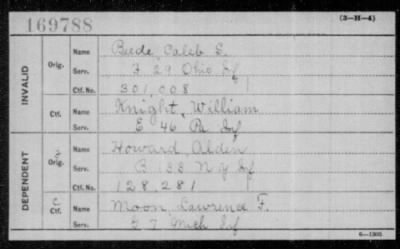 169788 (3-H-4)
INVALID
Orig. Name Caleb E.
Serv. F 29 Ohio Inf
Ctf. No. 301,008
Ctf. Name Knight, William
Serv. E 46 Pa Inf
DEPENDENT
Orig. Name Howard, Alden
Serv. B N Y Inf
Ctf. No. 128,281
C
Ctf. Name Moon, Lawrence F.
Serv. 7 Mich Inf
6-1305